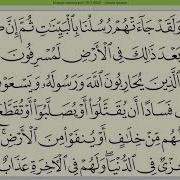 وَلَقَدْ جَآءَتْهُمْ رُسُلُنَا بِٱلْبَيِّنَٰتِ ثُمَّ إِنَّ
بَعْدَ ذَٰلِكَ فِى ٱلْأَرْضِ لَمُسْرِفُونَ
ٱلَّذِينَ يُحَارِبُونَ ٱللَّهَ وَرَسُولَهُۥ وَيَسْعَوْنَ
فَسَادًا أَن يُقَتَّلُوٓا۟ أَوْ يُصَلَّبُوٓا۟ أَوْ تُقَطَّعَ
هُم مِّنْ خِلَٰفٍ أَوْ يُنفَوْا۟ مِنَ ٱلْأَرْضِ
خِزْىٌ فِى ٱلدُّنْيَا وَلَهُمْ فِى ٱلْءَاخِرَةِ عَذَابٌ